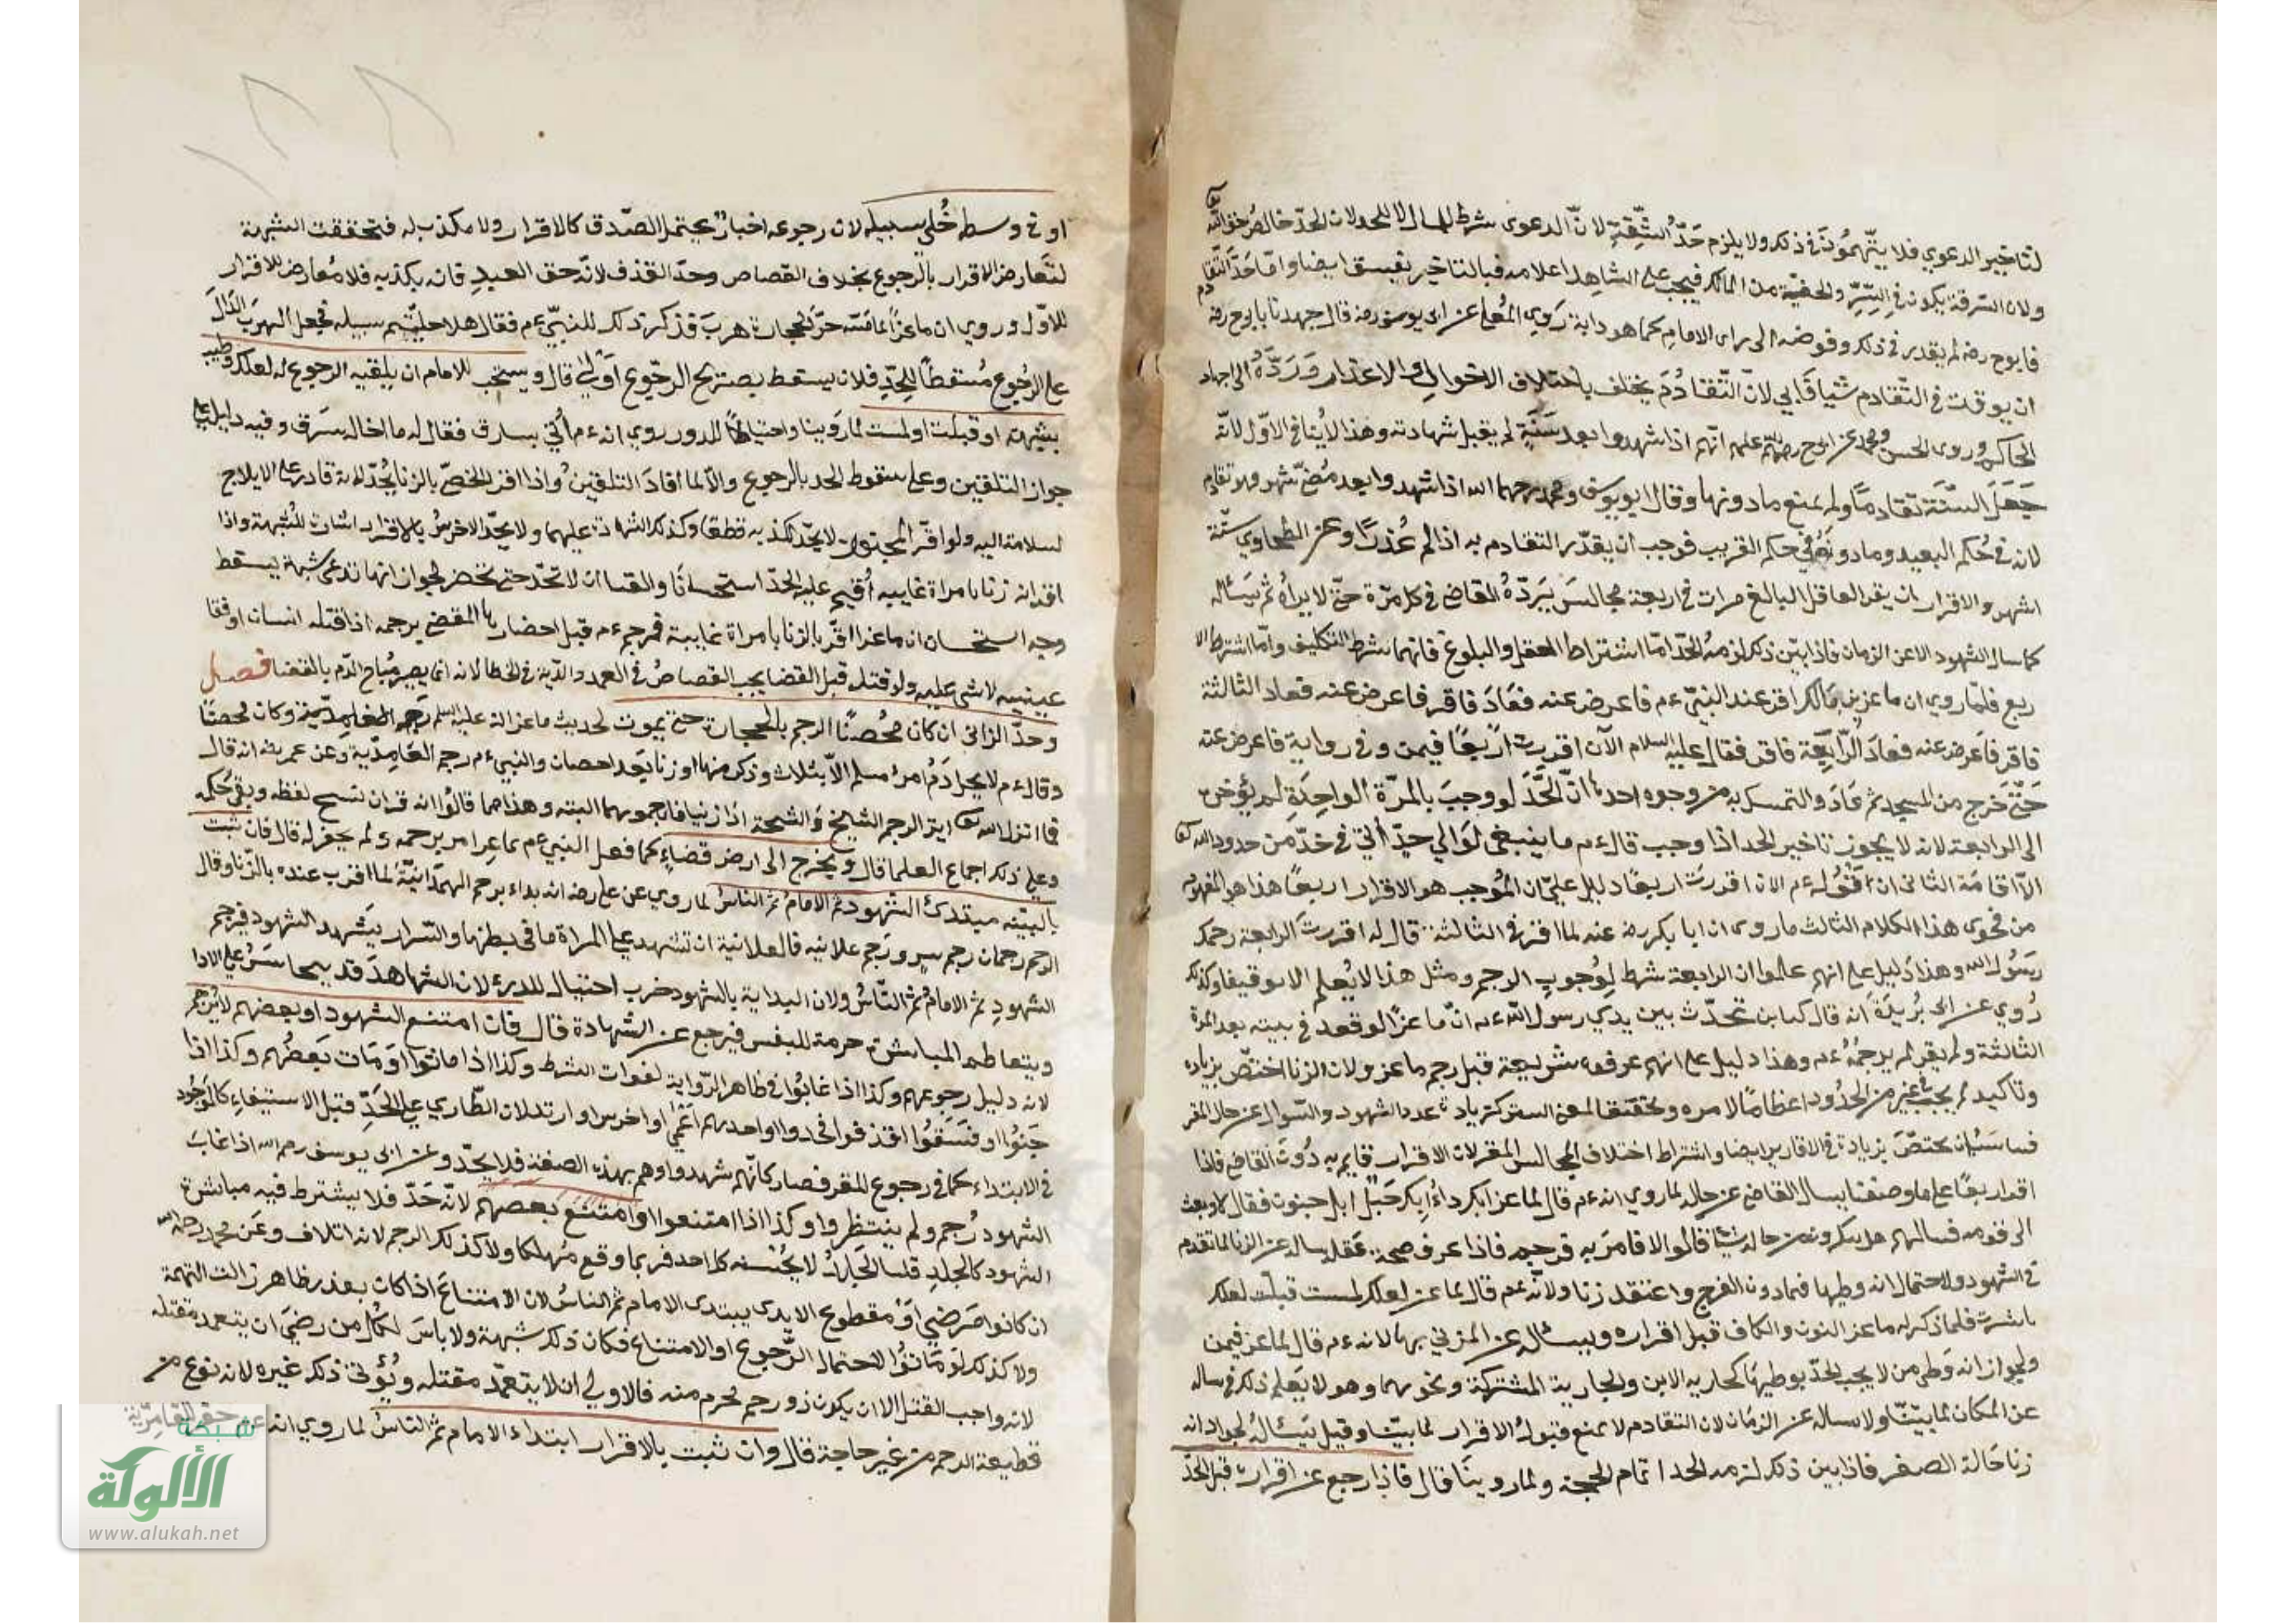 لتاخير الدعوي فلا يتهمون في ذلك ولا يلزم حد السرقة لان الدعوى شرط للمال لا للحد لان الحد خالص حق الله تعا
ولان السرقة يكون في السر والخفية من المالك فيجب على الشاهد اعلامه فبالتاخير يفسق ايضا واما حد التقادم
فابوح رضه لم يقدر في ذلك وفوضه الى راى الامام كما هو دابه روي المعلى عن ابى يوسف رضه قال جهدنا بابى ح رضه
ان يوقت في التقادم شيئا فابي لان التقادم يختلف باختلاف الاحوال والاعذار ورده الى اجتهاد
الحاكم وروى الحسن ومحمد عن ابى ح رضى عنهم انهم اذا شهدوا بعد سنة لم يقبل شهادته وهذا لاينافى الاول لانه
جعل السنة تقادما ولم يمنع مادونها وقال ابو يوسف ومحمد رحمهما الله اذا شهدوا بعد مضى شهر فهو تقادم
لانه في حكم البعيد وما دونه في حكم القريب فوجب ان يقدر التقادم به اذا لم عذرا وعن الطحاوي ستة
اشهر والاقرار ان يقر العاقل البالغ مرات في اربعة مجالس يرده القاضي في كل مرة حتى لا يراه ثم يساله
كما سال الشهود الا عن الزمان فاذا بين ذلك لزمه الحد اما اشتراط العقل والبلوغ فانهما شرط التكليف واما اشتراط الا
ربع فلما روي ان ماعز بن مالك اقر عند النبي ءم فاعرض عنه فعاد فاقر فاعرض عنه فعاد الثالثة
فاقر فاعرض عنه فعاد الرابعة فاقر فقال عليه السلام الآن اقررت اربعا فبمن وفي رواية فاعرض عنه
حتى خرج من المسجد ثم عاد والتمسك به من وجوه احدها ان الحد لو وجب بالمرة الواحدة لم يؤخره
الى الرابعة لانه لا يجوز تاخير الحد اذا وجب قال ءم ما ينبغى لوالي حد أتي في حد من حدود الله تعا
الا اقامه الثاني ان قوله ءم الان اقررت اربعا دليل على ان الموجب هو الاقرار اربعا هذا هو المفهوم
من فحوى هذا الكلام الثالث ما روى ان ابا بكر رضه عنه لما اقر في الثالثة قال له اقررت الرابعة رجمك
رسول الله وهذا دليل على انهم علموا ان الرابعة شرط لوجوب الرجم ومثل هذا لايعلم الا توقيفا وكذلك
روي عن ابى بريدة انه قال كنا نتحدث بين يدي رسول الله ءم ان ماعزا لو قعد في بيته بعد المرة
الثالثة ولم يقر لم يرجمه ءم وهذا دليل على انهم عرفوه شريعة قبل رجم ماعز ولان الزنا اختص بزيادة
وتاكيد لم يجب في غيره من الحدود اعظاما لامره وتحقيقا لمعنى الستر كزيادة عدد الشهود والسوال عن حال المقر
فناسب ان يختص بزيادة في الاقارير ايضا واشتراط اختلاف المجالس المقر لان الاقرار قايم به دون القاضي فاذا
اقر اربعا على ما وصفنا يسال القاضي عن حاله لما روي انه ءم قال لماعز ابك داء ابك خبل ابك جنون فقال لا وبعث
الى قومه فسالهم هل ينكرون من حاله شيئا قالوا لا فامر به فرجم فاذا عرف صحة عقله يساله عن الزنا لما تقدم
في الشهود ولاحتمال انه وطيها فيما دون الفرج واعتقد زنا ولانه ءم قال لماعز لعلك لمست قبلت لعلك
باشرت فلما ذكر له ماعز النون والكاف قبل اقراره ويساله عن المزني بها لانه ءم قال لماعز فبمن
ولجواز انه وطى من لا يجب الحد بوطيها كجارية الابن والجارية المشتركة ونحوهما وهو لا يعلم ذلك فيساله
عن المكان لما بينا ولا يساله عن الزمان لان التقادم لا يمنع قبول الاقرار لما بينا وقيل يسأله لجواز انه
زنا حالة الصغر فاذا بين ذلك لزمه الحد اتمام الحجة ولما روينا قال فاذا رجع عن اقراره قبل الحد
او في وسطه خلى سبيله لان رجوعه اخبار يحتمل الصدق كالاقرار ولا مكذب له فتحققت الشبهة
لتعارض الاقرار بالرجوع بخلاف القصاص وحد القذف لانه حق العبد فانه يكذبه فلا معارض للاقرار
الاول وروي ان ماعزا لما مسه حر الحجارة هرب فذكر ذلك للنبي ءم فقال هلا خليتم سبيله فجعل الهرب الدال
على الرجوع مسقطا للحد فلان يسقط بصريح الرجوع اولى قال ويستحب للامام ان يلقنه الرجوع له لعلك وطيت
بشبهة او قبلت او لمست لما روينا واحتياطا للدرء وروي انه ءم أتي بسارق فقال له ما اخاله سرق وفيه دليل على
جواز التلقين وعلى سقوط الحد بالرجوع والا لما افاد التلقين واذا اقر الخصي بالزنا يحد لانه قادر على الايلاج
لسلامة اليه ولو اقر المجبوب لا يحد لكذبه قطعا وكذلك الشهادة عليهما ولا يحد الاخرس بالاقرار اشارة للشبهة واذا
اقر انه زنا بامراة غايبه أقيم عليه الحد استحسانا والقياس ان لا تحد حتى تحضر لجواز انها تدعى شبهة يسقط
وجه استحسان ان ماعزا اقر بالزنا بامراة غايبة فرجم ءم قبل احضارها المقضي برجمه اذا قتله انسان او فقا
عينيه لا شى عليه ولو قتله قبل القضا يجب القصاص في العمد والدية في الخطا لانه انما يصير مباح الدم بالقضا فصل
وحد الزاني ان كان محصنا الرجم بالحجارة حتى يموت لحديث ماعز انه عليه السلم رجم الغامدية وكان محصنا
وقال ءم لا يحل دم امرء مسلم الا بثلاث وذكر منها او زنا بعد احصان والنبي ءم رجم الغامدية وعن عمر رضه انه قال
فما انزل الله تعا اية الرجم الشيخ والشيخة اذا زنيا فارجموهما البته وهذا مما قالوا انه قران نسخ لفظه وبقى حكمه
وعلى ذلك اجماع العلما قال ويخرج الى ارض قضاء كما فعل النبي ءم بماعز امر برجمه ولم يحفر له قال فان ثبت
بالبينه يبتدئ الشهود ثم الامام ثم الناس لما روي عن علي رضه انه بداء برجم الهمدانية لما اقرت عنده بالزنا وقال
الرجم رجمان رجم سر ورجم علانيه فالعلانية ان تشهد على المراة ما في بطنها والسر ان يشهد الشهود فيرجم
الشهود ثم الامام ثم الناس ولان البداية بالشهود ضرب احتيال للدرء لان الشاهد قد يتجاسر على الادا
ويتعاظم المباشرة حرمة للنفس فيرجع عن الشهادة قال فان امتنع الشهود او بعضهم لا يرجم
لانه دليل رجوعهم وكذا اذا غابوا في ظاهر الرواية لفوات الشرط وكذا اذا ماتوا او مات بعضهم وكذا اذا
جنوا او فسقوا او قذفوا فحدوا او احدهم اعمى او اخرس او ارتد لان الطاري على الحد قبل الاستيفاء كالموجود
في الابتداء كما في رجوع المقر فصار كانهم شهدوا وهم بهذه الصفة فلا يحد وعن ابى يوسف رحم الله اذا غاب
الشهود رجم ولم ينتظروا وكذا اذا امتنعوا او امتنع بعضهم لانه حد فلا يشترط فيه مباشرة
الشهود كالجلد قلنا الجلد لا يحسنه كل احد فربما وقع مهلكا ولا كذلك الرجم لانه اتلاف وعن محمد رحمه الله
ان كانوا مرضى او مقطوع الايدى يبتدى الامام ثم الناس لان الامتناع اذا كان بعذر ظاهر زالت التهمة
ولا كذلك لو ماتوا لاحتمال الرجوع او الامتناع فكان ذلك شبهة ولا باس لكل من رمى ان يتعمد مقتله
لانه واجب القتل الا ان يكون ذو رحم محرم منه فالاولى ان لا يتعمد مقتله ويؤتى ذلك غيره لانه نوع من
قطيعة الرحم من غير حاجة قال وان ثبت بالاقرار ابتداء الامام ثم الناس لما روي انه ءم حفر للغامدية
شبكة
الألوكة
www.alukah.net